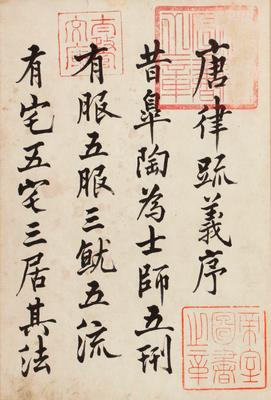 唐律䟽義序
昔皐陶為士師五刑
有服五服三就五流
有宅五宅三居其法
帝室
圖書
之章